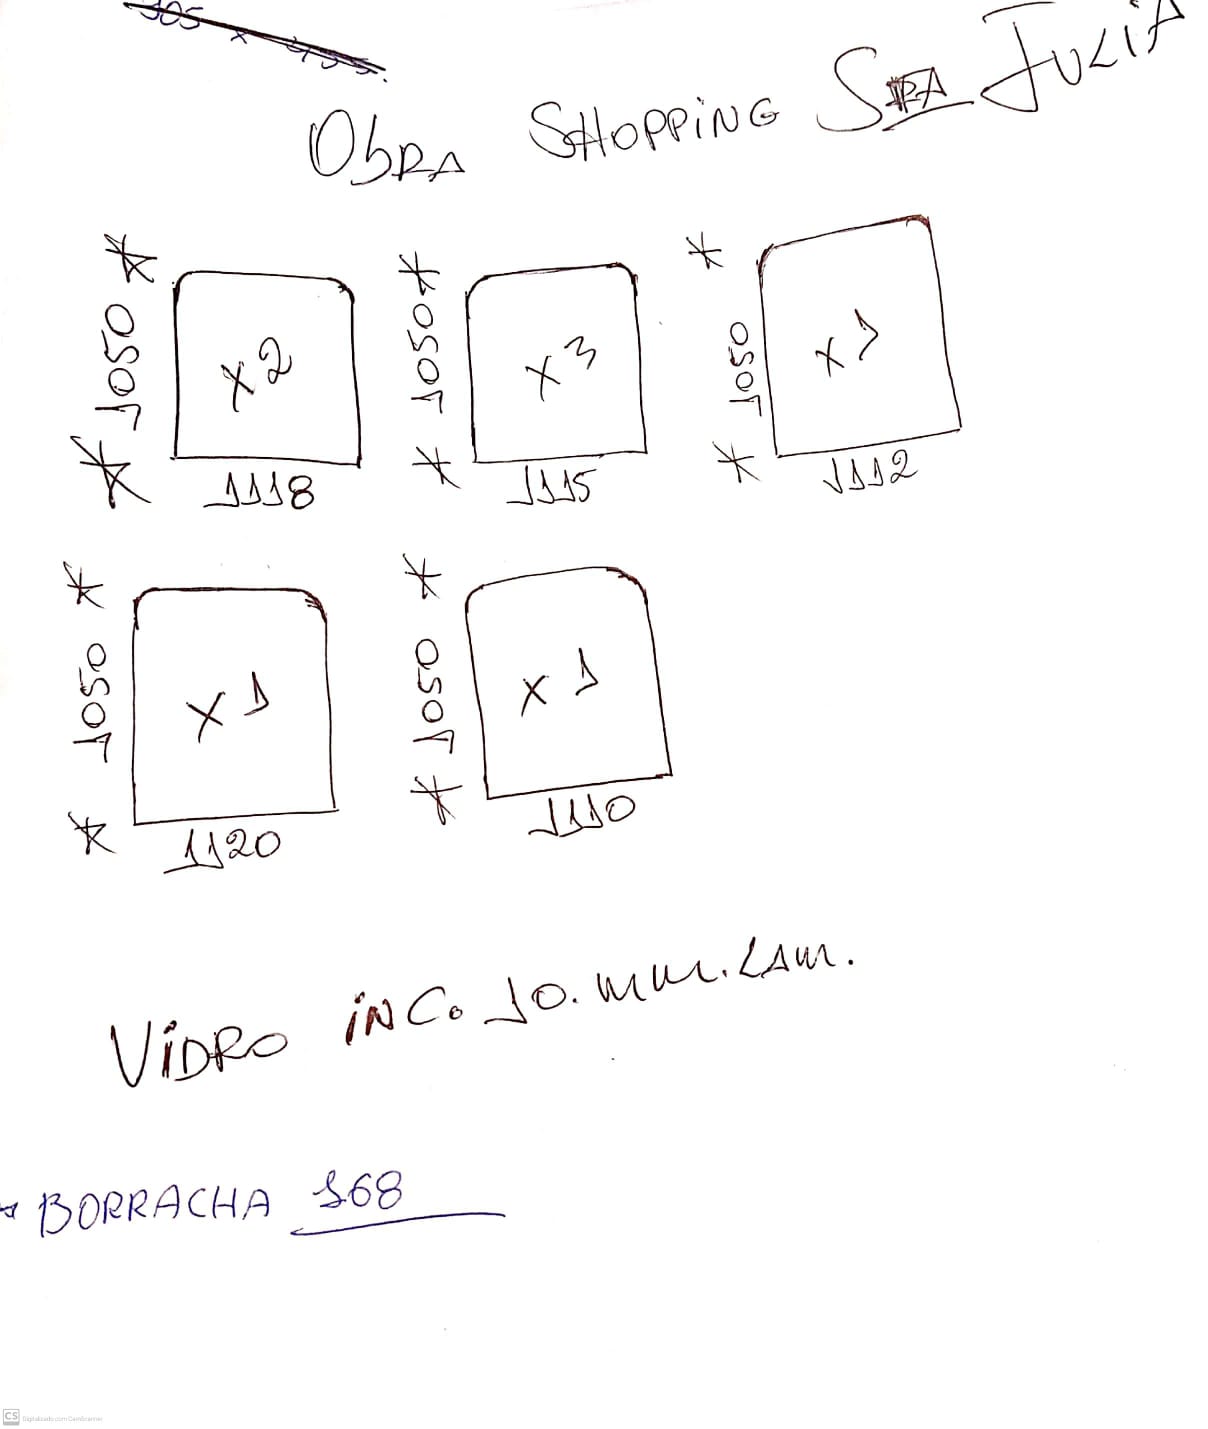 OBRA SHOPPING STA JULIA
* 1050 *
x2
1118
* 1050 *
x3
1115
* 1050 *
x1
1112
* 1050 *
x1
1120
* 1050 *
x1
1110
VIDRO INC. 10.mm.LAM.
BORRACHA 168
CS Digitalizado com CamScanner